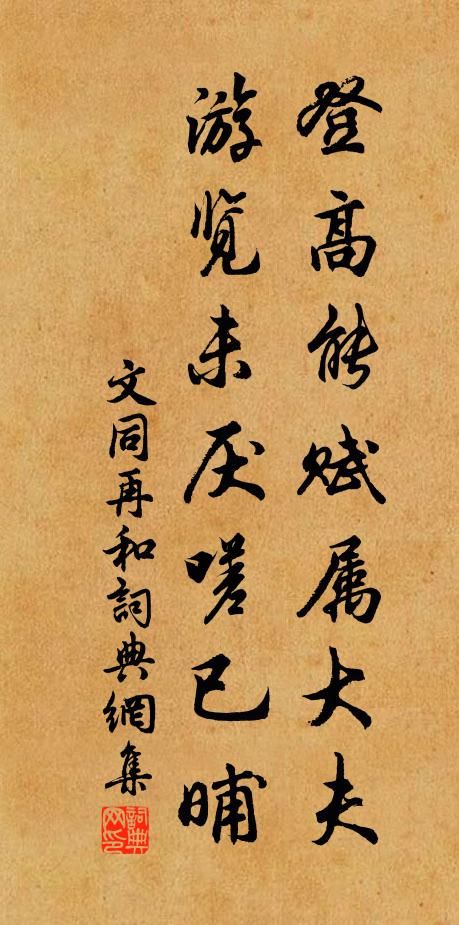 登高能赋属大夫
游览未厌嗟已晡
文同再和詞典網集
詞典网印